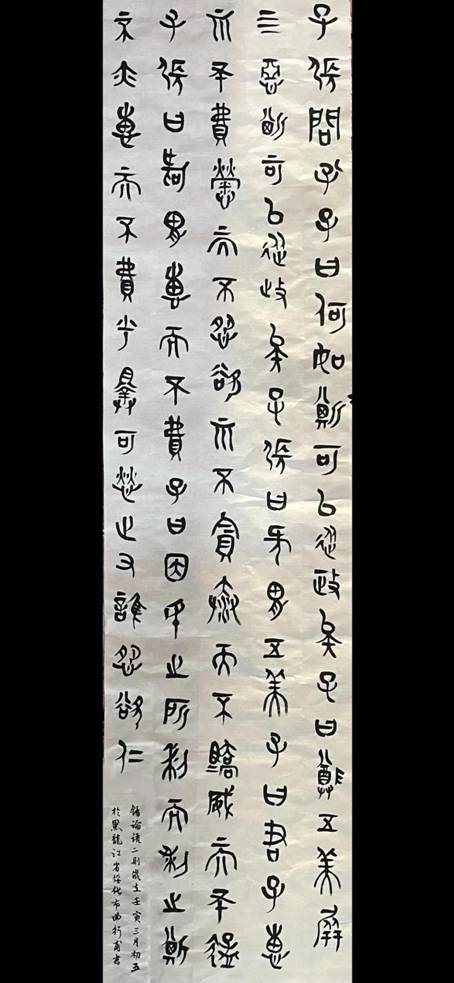 子張問孔子曰何如斯可以從政矣子曰尊五美屏
四惡斯可以從政矣子張曰何謂五美子曰君子惠
而不費勞而不怨欲而不貪泰而不驕威而不猛
子張曰何謂惠而不費子曰因民之所利而利之斯
不亦惠而不費乎擇可勞之又誰怨欲仁
論語二則歲在壬寅三月初五
於黑龍江省綏化市曲行甫書